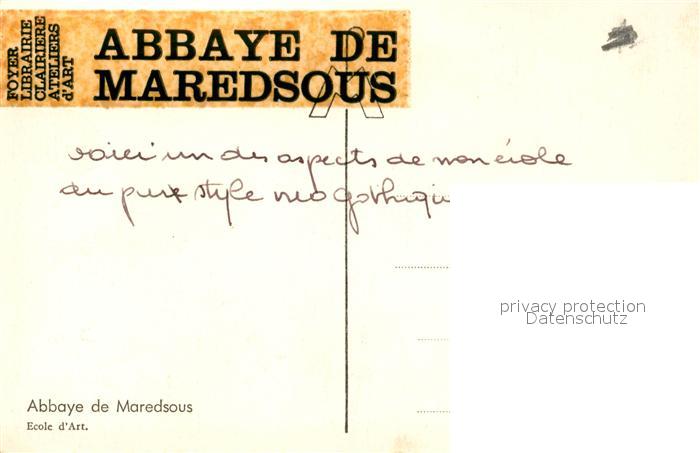 FOYER
LIBRAIRIE
CLAIRIERE
ATELIERS
d'ART
ABBAYE DE
MAREDSOUS
voici un des aspects de mon école
du pur style neo Gothique
privacy protection
Datenschutz
Abbaye de Maredsous
Ecole d'Art.